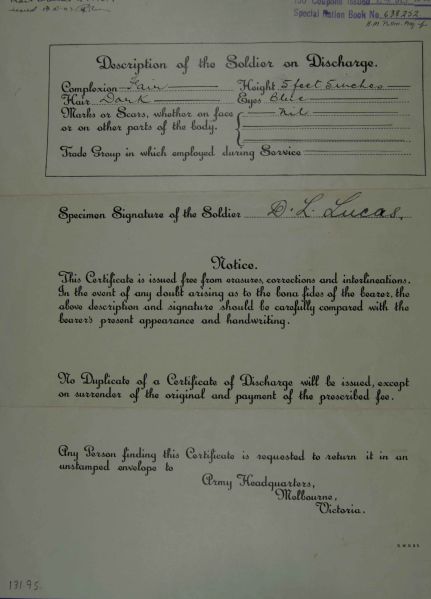 Special Ration Book No. 638252
Description of the Soldier on Discharge.
Complexion Fair Height 5 feet 5 inches
Hair Dark Eyes Blue
Marks or Scars, whether on face Nil
or on other parts of the body.
Trade Group in which employed during Service
Specimen Signature of the Soldier D. L. Lucas.
Notice.
This Certificate is issued free from erasures, corrections and interlineations.
In the event of any doubt arising as to the bona fides of the bearer, the
above description and signature should be carefully compared with the
bearer's present appearance and handwriting.
No Duplicate of a Certificate of Discharge will be issued, except
on surrender of the original and payment of the prescribed fee.
Any Person finding this Certificate is requested to return it in an
unstamped envelope to
Army Headquarters,
Melbourne,
Victoria.
13195